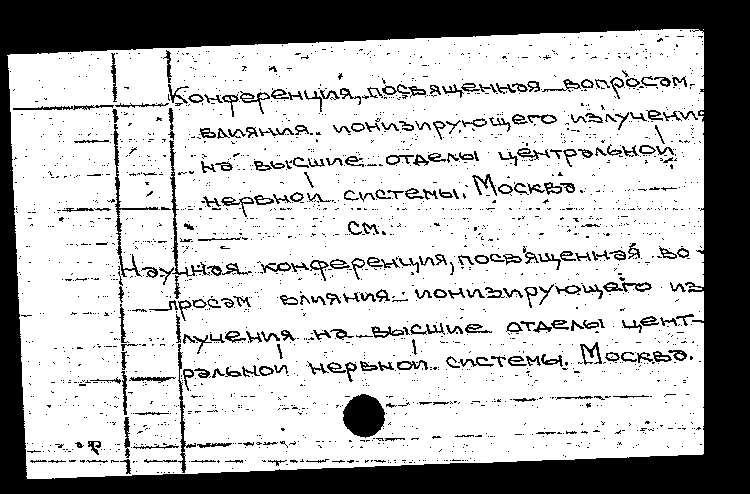 Конференция, посвященная вопросам
влияния ионизирующего излучения
на высшие отделы центральной
нервной системы. Москва.
см.
Научная конференция, посвященная во-
просам влияния ионизирующего из
лучения на высшие отделы цент-
ральной нервной системы. Москва.